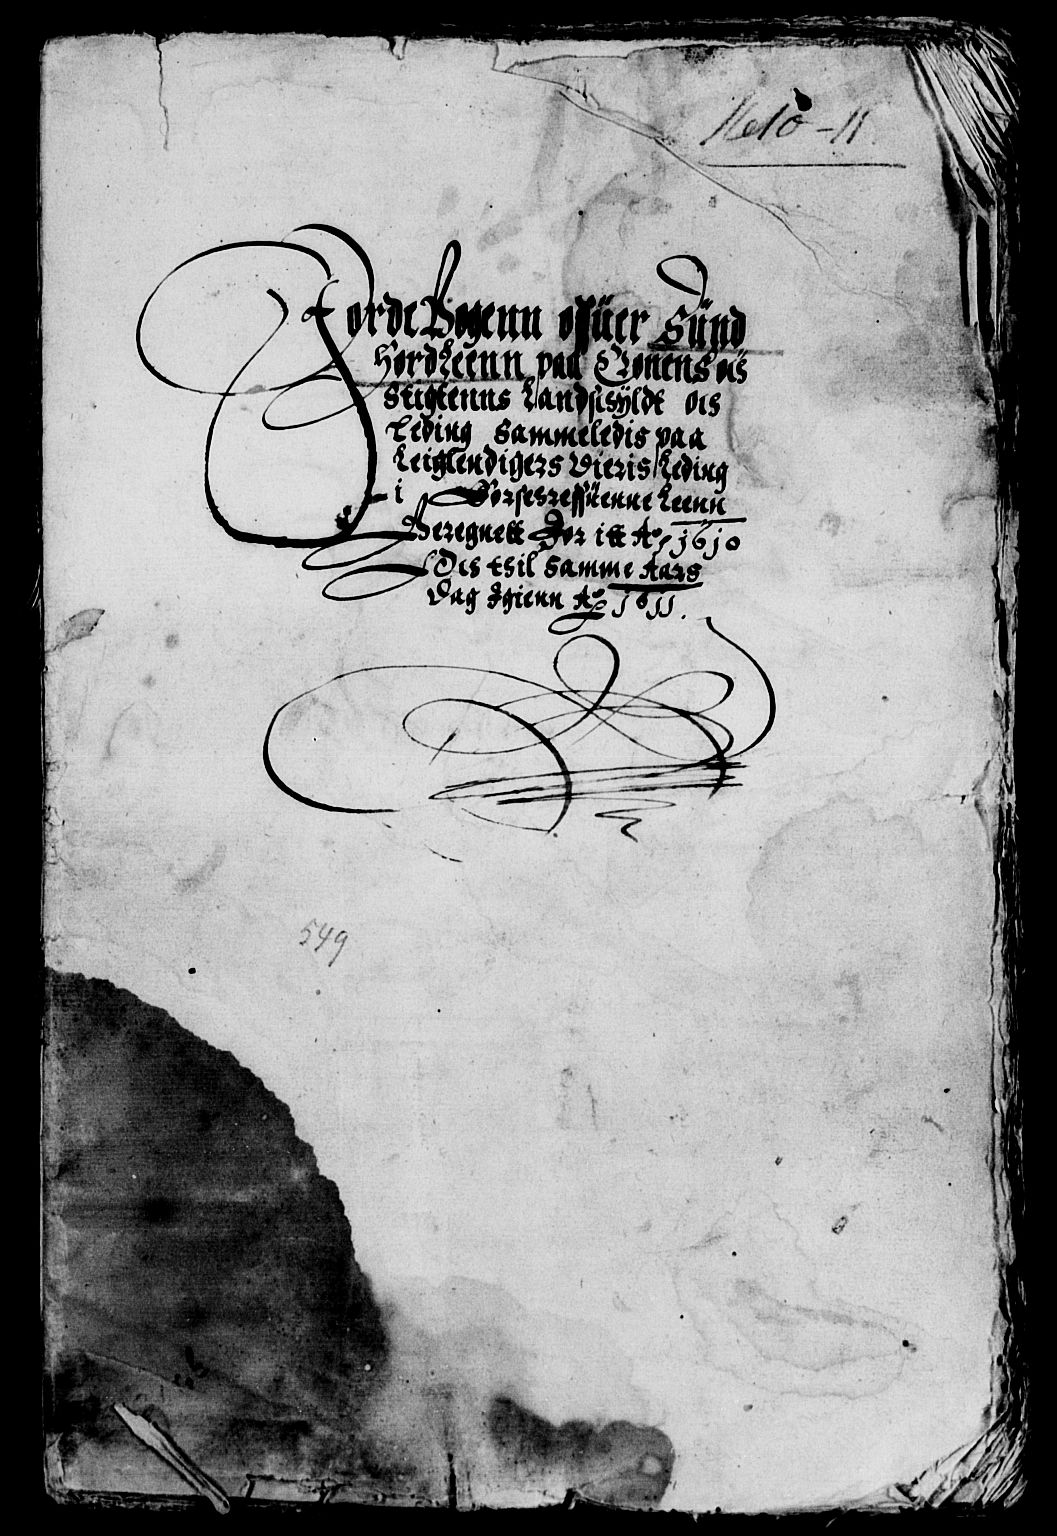 1610-11.
Jorde Bogenn offuer Sünd
Hordleenn paa Cronens ois
Stigtenns Landsisyldt ois
Leding Sammeledis paa
Leiglendigers Vieris Leding
i Leenn
Beregnett For itt Ao 1610
Ois thil Samme Aars
Dag Igienn Ao 1611.
549